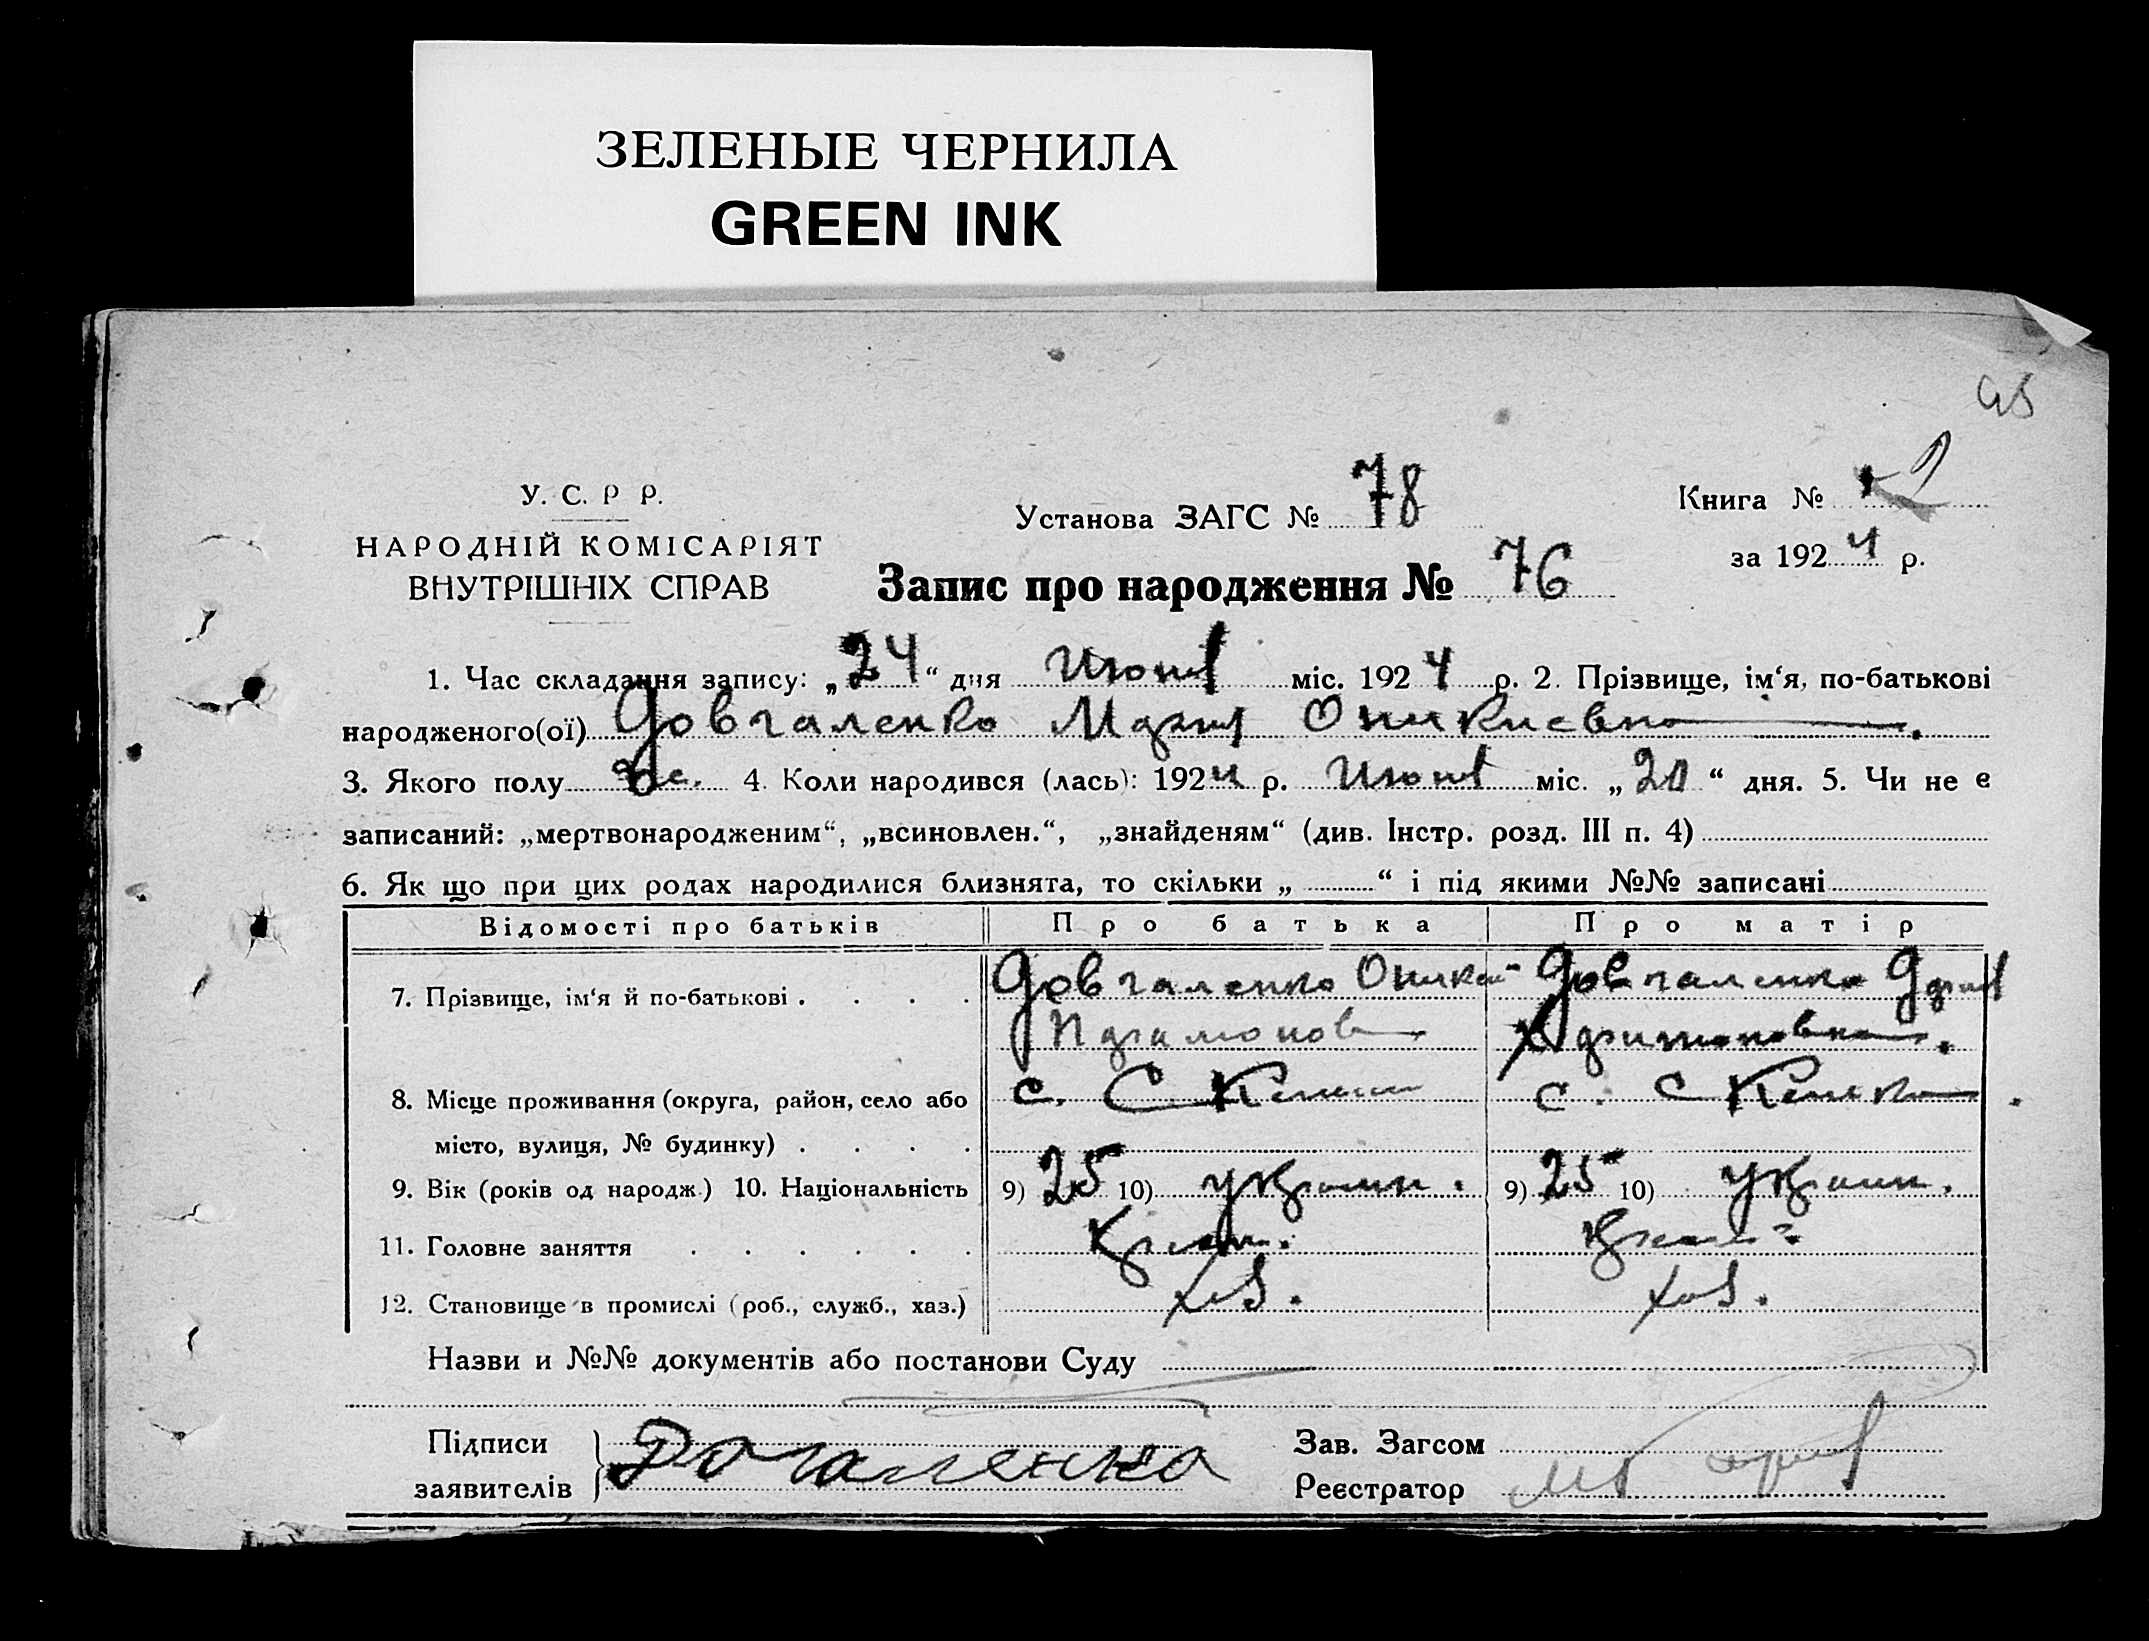 ЗЕЛЕНЫЕ ЧЕРНИЛА
GREEN INK
У. С. Р Р.
НАРОДНІЙ КОМІСАРІЯТ
ВНУТРІШНІХ СПРАВ
Установа ЗАГС № 78
Запис про народження № 76
Книга № 2
за 1924 р.
1. Час складання запису: „24“ дня Июня міс. 1924 р. 2. Прізвище, ім‘я, по-батькові
народженого(ої) Довгаленко Мария Оникиевна
3. Якого полу ж. 4. Коли народився (лась): 1924 р. Июня міс. „20“ дня. 5. Чи не є
записаний: „мертвонародженим“, „всиновлен.“, „знайденям“ (див. Інстр. розд. III п. 4)
6. Як що при цих родах народилися близнята, то скільки „ “ і під якими №№ записані
Відомості про батьків Про батька Про матір
7. Прізвище, ім‘я й по-батькові . . . . Довгаленко Оникий Довгаленко Дария
8. Місце проживання (округа, район, село або с. С с. С
місто, вулиця, № будинку) . . . .
9. Вік (років од народж.) 10. Національність 9) 25 10) украин. 9) 25 10) украин.
11. Головне заняття . . . . . .
12. Становище в промислі (роб., служб., хаз.) хаз. хаз.
Назви и №№ документів або постанови Суду
Підписи
заявителів
Зав. Загсом
Реєстратор